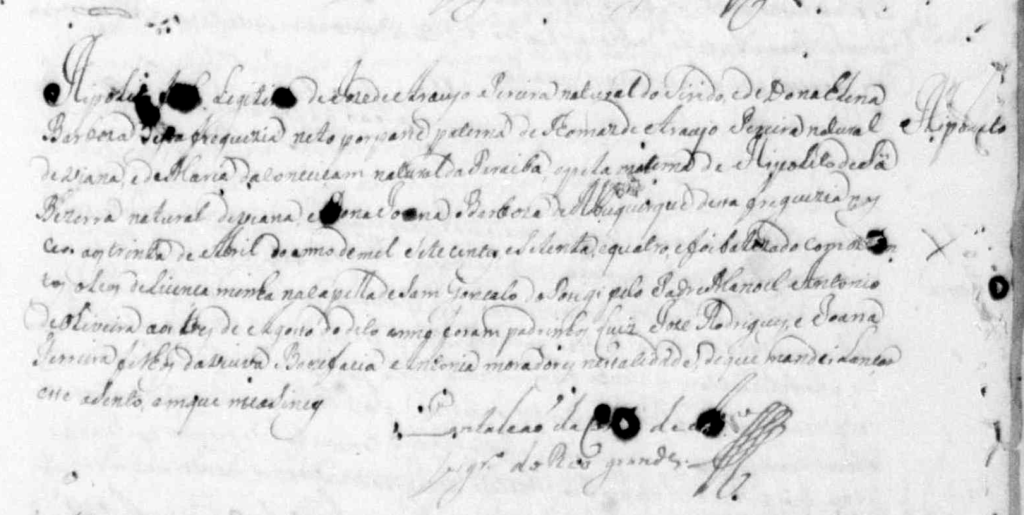 Hipolito filho Legitimo de Jose de Araujo Pereira natural do Siridó, e de Dona Elena
Barboza desta freguezia neto por parte paterna de Thomaz de Araujo Pereira natural
de Viana, e de Maria da Conceicam natural da Paraiba, e pela materna de Hipolito de Sá
Bezerra natural de Viana, e Dona Joana Barboza de Albuquerque desta freguezia nas
ceo aos trinta de Abril do anno de mil e sete centos e setenta, e quatro, e foi batizado com os San
tos oleos de licenca minha na capella de Sam Goncalo do Potegi pelo Padre Manoel Antonio
de Oliveira aos de Agosto do dito anno foram padrinhos Luiz Jose Rodrigues, e Joana
Ferreira filhos da viuva Bonifacia Antonia moradores nesta cidade, de que mandei lancar
este acento, em que me asiney
Pantaleão da Costa de Ar.º
Vigr.º do Rio grande
Hipolito